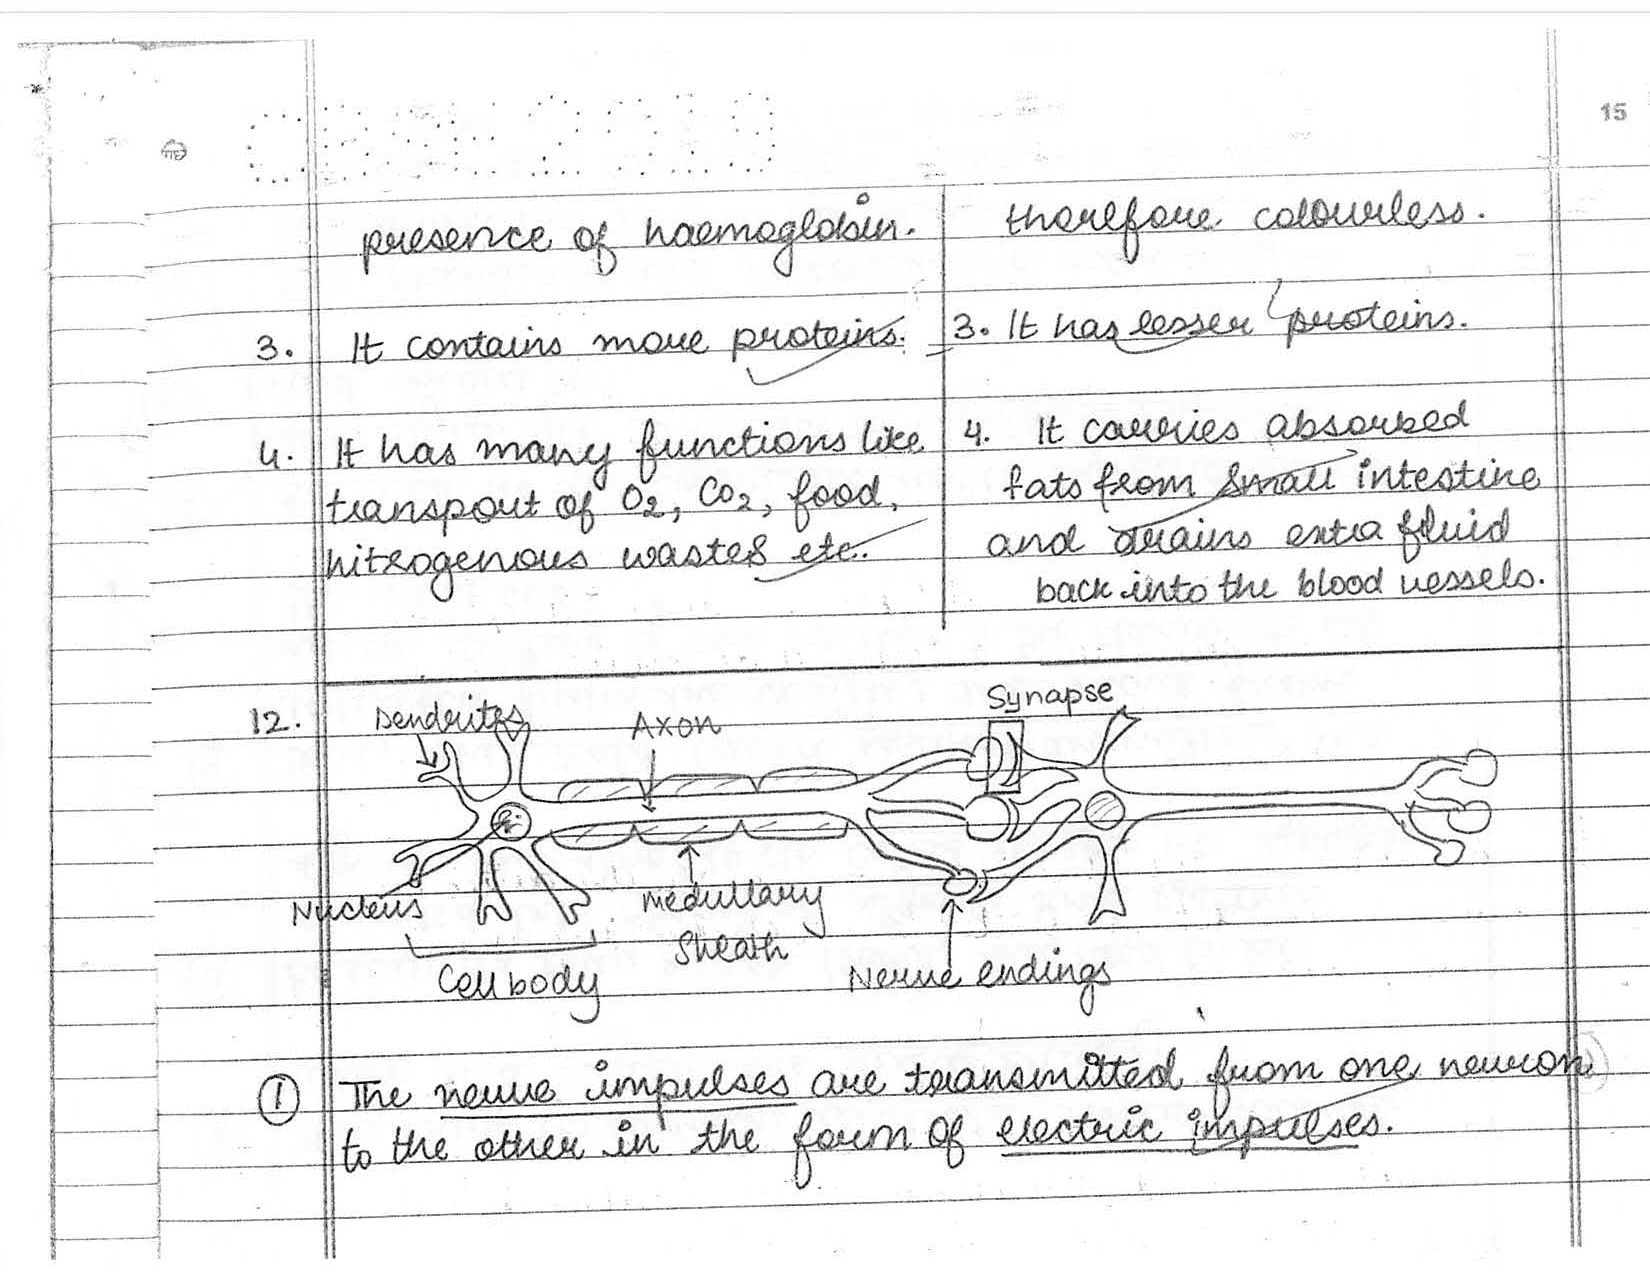 15
presence of haemoglobin.
therefore colourless.
3. It contains more proteins.
3. It has lesser proteins.
4. It has many functions like
transport of O2, CO2, food,
nitrogenous wastes etc.
4. It carries absorbed
fats from small intestine
and drains extra fluid
back into the blood vessels.
12.
Dendrites
Axon
Synapse
Nucleus
Medullary
Sheath
Cell body
Nerve endings
1 The nerve impulses are transmitted from one neuron
to the other in the form of electric impulses.